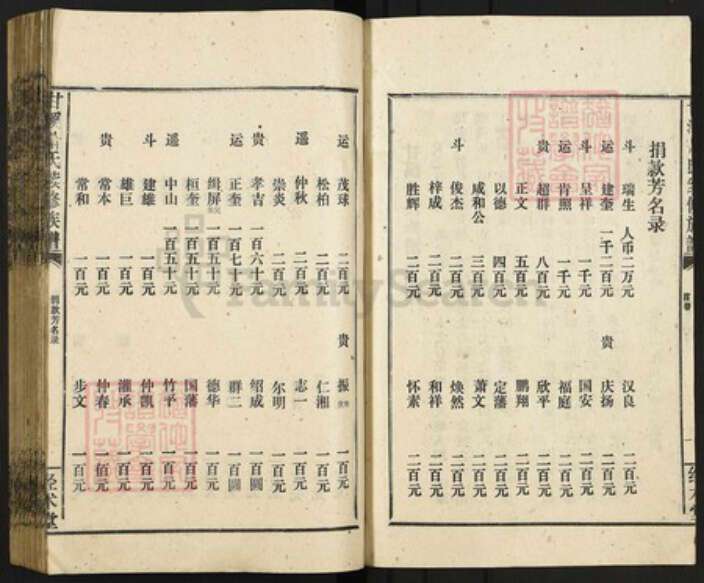 捐款芳名录
斗 瑞生 人币二万元 汉良 二百元
运 建奎 一千二百元 贵 庆扬 二百元
斗 呈祥 一千元 国安 二百元
运 肯照 一千元 福庭 二百元
贵 超群 八百元 欣平 二百元
正文 五百元 鹏翔 二百元
以德 四百元 定藩 二百元
咸和公 三百元 萧文 二百元
斗 俊杰 二百元 焕然 二百元
梓成 二百元 和祥 二百元
胜辉 二百元 怀素 二百元
运 茂球 二百元 贵 振 一百元
松柏 二百元 仁湘 一百元
遥 仲秋 二百元 志一 一百元
崇炎 二百元 尔明 一百元
贵 孝吉 一百六十元 绍成 一百圆
运 正奎 一百七十元 群二 一百圆
缉屏 一百五十元 德华 一百元
桓奎 一百五十元 国藩 一百元
遥 中山 一百五十元 竹平 一百元
斗 建雄 一百元 仲凯 一百元
雄巨 一百元 灌承 一百元
贵 常本 一百元 仲春 一佰元
常和 一百元 步文 一百元
捐款芳名录
经术堂
FamilySearch